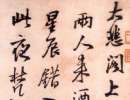 大悲閣上
兩人来酒
星辰錯
此夜